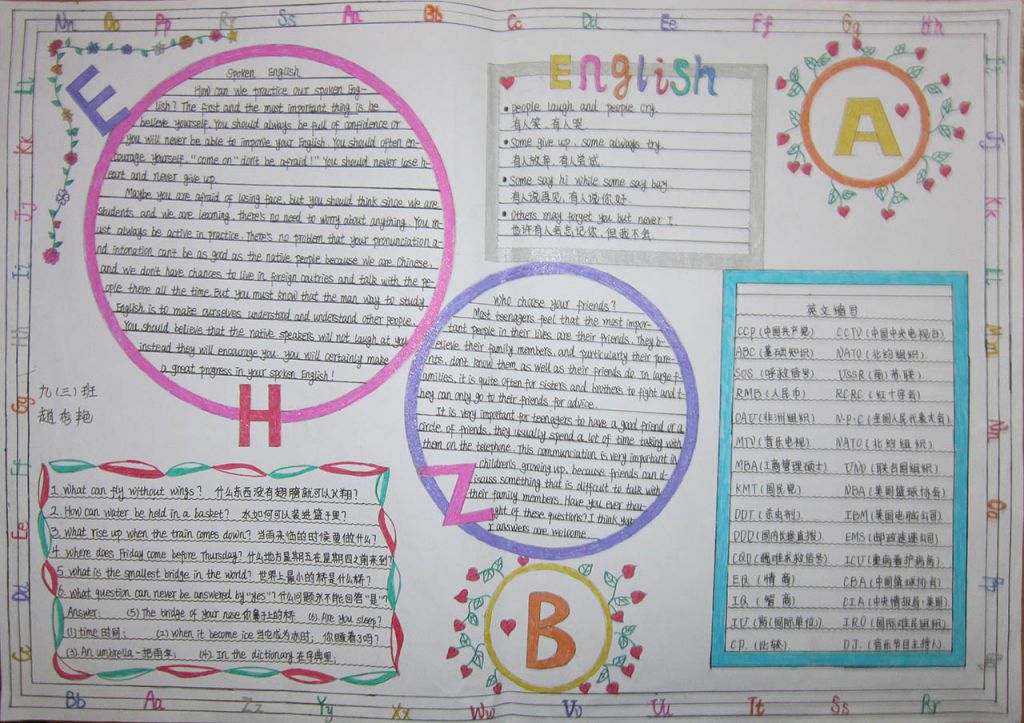 Nn Oo Pp Rr Ss Aa Bb Cc Dd Ee Ff Gg Hh
E
Spoken English
How can we practice our spoken Eng-
lish? The first and the most important thing is be
believe yourself. You should always be full of confidence or
you will never be able to improve your English. You should often en-
courage yourself, "come on" "don't be afraid!" You should never lose h-
eart and never give up.
Maybe you are afraid of losing face, but you should think since we are
students and we are learning, there's no need to worry about anything. You m-
ust always be active in practice. There's no problem that your pronunciation a-
nd intonation can't be as good as the native people because we are Chinese,
and we don't have chances to live in foreign coutries and talk with the pe-
ople there all the time. But you must know that the man way to study
English is to make ourselves understood and understand other people.
You should believe that the native speakers will not laugh at you,
instead they will encourage you. you will certainly make
a great progress in your spoken English!
H
九(三)班
赵秀艳
English
people laugh and people cry.
有人笑,有人哭
Some give up, some always try.
有人放弃,有人尝试
Some say hi while some say bay.
有人说再见,有人说你好.
Others may forget you but never I.
也许有人会忘记你,但我不会.
A
Who choose your friends?
Most teenagers feel that the most impor-
tant people in their lives are their friends. They b-
elieve their family members, and particularly their pare-
nts, don't know them as well as their friends do. In large f-
amilies, it is quite often for sisters and brothers to fight and t-
hey can only go to their friends for advice.
It is very important for teenagers to have a good friend or a
circle of friends. they usually spend a lot of time taking with
them on the telephone. This communciation is very important in
children's growing up, because friends can d-
iscuss something that is difficult to talk with
their family members. Have you ever thou-
ght of these questions? I think
r answers are welcome.
Z
英文缩目
CCP (中国共产党) CCTV (中国中央电视台)
ABC (基础知识) NATO (北约组织)
SOS (呼救信号) USSR (苏联)
RMB (人民币) RCRC (红十字会)
OAU (非洲组织) N.P.C (全国人民代表大会)
MTV (音乐电视) NATO (北约组织)
MBA (工商管理硕士) UNO (联合国组织)
KMT (国民党) NBA (美国篮球协会)
DDT (杀虫剂) IBM (美国电脑公司)
DDD (国内长途直拨) EMS (邮政速递公司)
CQD (遇难求救信号) ICU (重病看护病房)
EQ (情商) CBA (中国篮球协会)
IQ (智商) CIA (中央情报局·美国)
IU (国际单位) IRO (国际难民组织)
CP. (比较) DJ. (音乐节目主持人)
1. What can fly without wings? 什么东西没有翅膀就可以飞翔?
2. How can water be held in a basket? 水如何可以装进篮子里?
3. what rise up when the train comes down?
4. where does Friday come before Thursday? 什么地方星期五在星期四前来到?
5. what is the smallest bridge in the world? 世界上最小的桥是什么桥?
6. what question can never be answered by "yes"? 什么问题永不能回答"是"?
Answer: (5) The bridge of your nose 你鼻子上的桥 (6). Are you sleep?
(1) time 时间; (2) when it become ice 当它成为冰时; 你睡着了吗?
(3). An umbrella 一把雨伞; (4) In the dictionary 在字典里;
B
Bb Aa Zz Yy Xx Ww Vv Uu Tt Ss Rr
Ll Kk Jj Ii Hh Gg Ff Ee Dd Cc
Ii Jj Kk Ll Mm Nn Oo Pp Qq